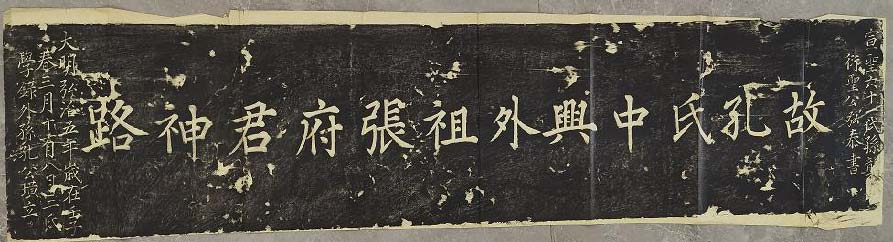 宣聖六十一代孫襲
衍聖公弘泰書
故孔氏中興外祖張府君神路
大明弘治五年歲在壬子
春三月十有八日三氏
學錄外孫孔公璜立